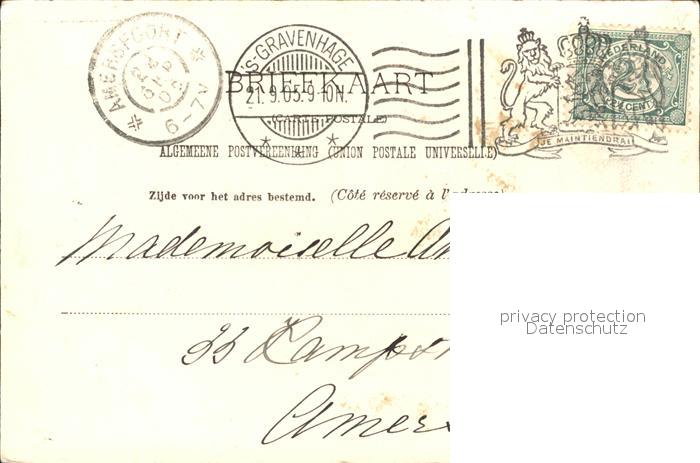 AMERSFOORT
6-7V
'S-GRAVENHAGE
21.9.05.9-10N.
NEDERLAND
2½ CENT
JE MAINTIENDRAI
BRIEFKAART
(CARTE POSTALE)
ALGEMEENE POSTVEREENIGING (UNION POSTALE UNIVERSELLE)
Zijde voor het adres bestemd. (Côté réservé à l'adresse)
Mademoiselle
privacy protection
Datenschutz
33
Amers